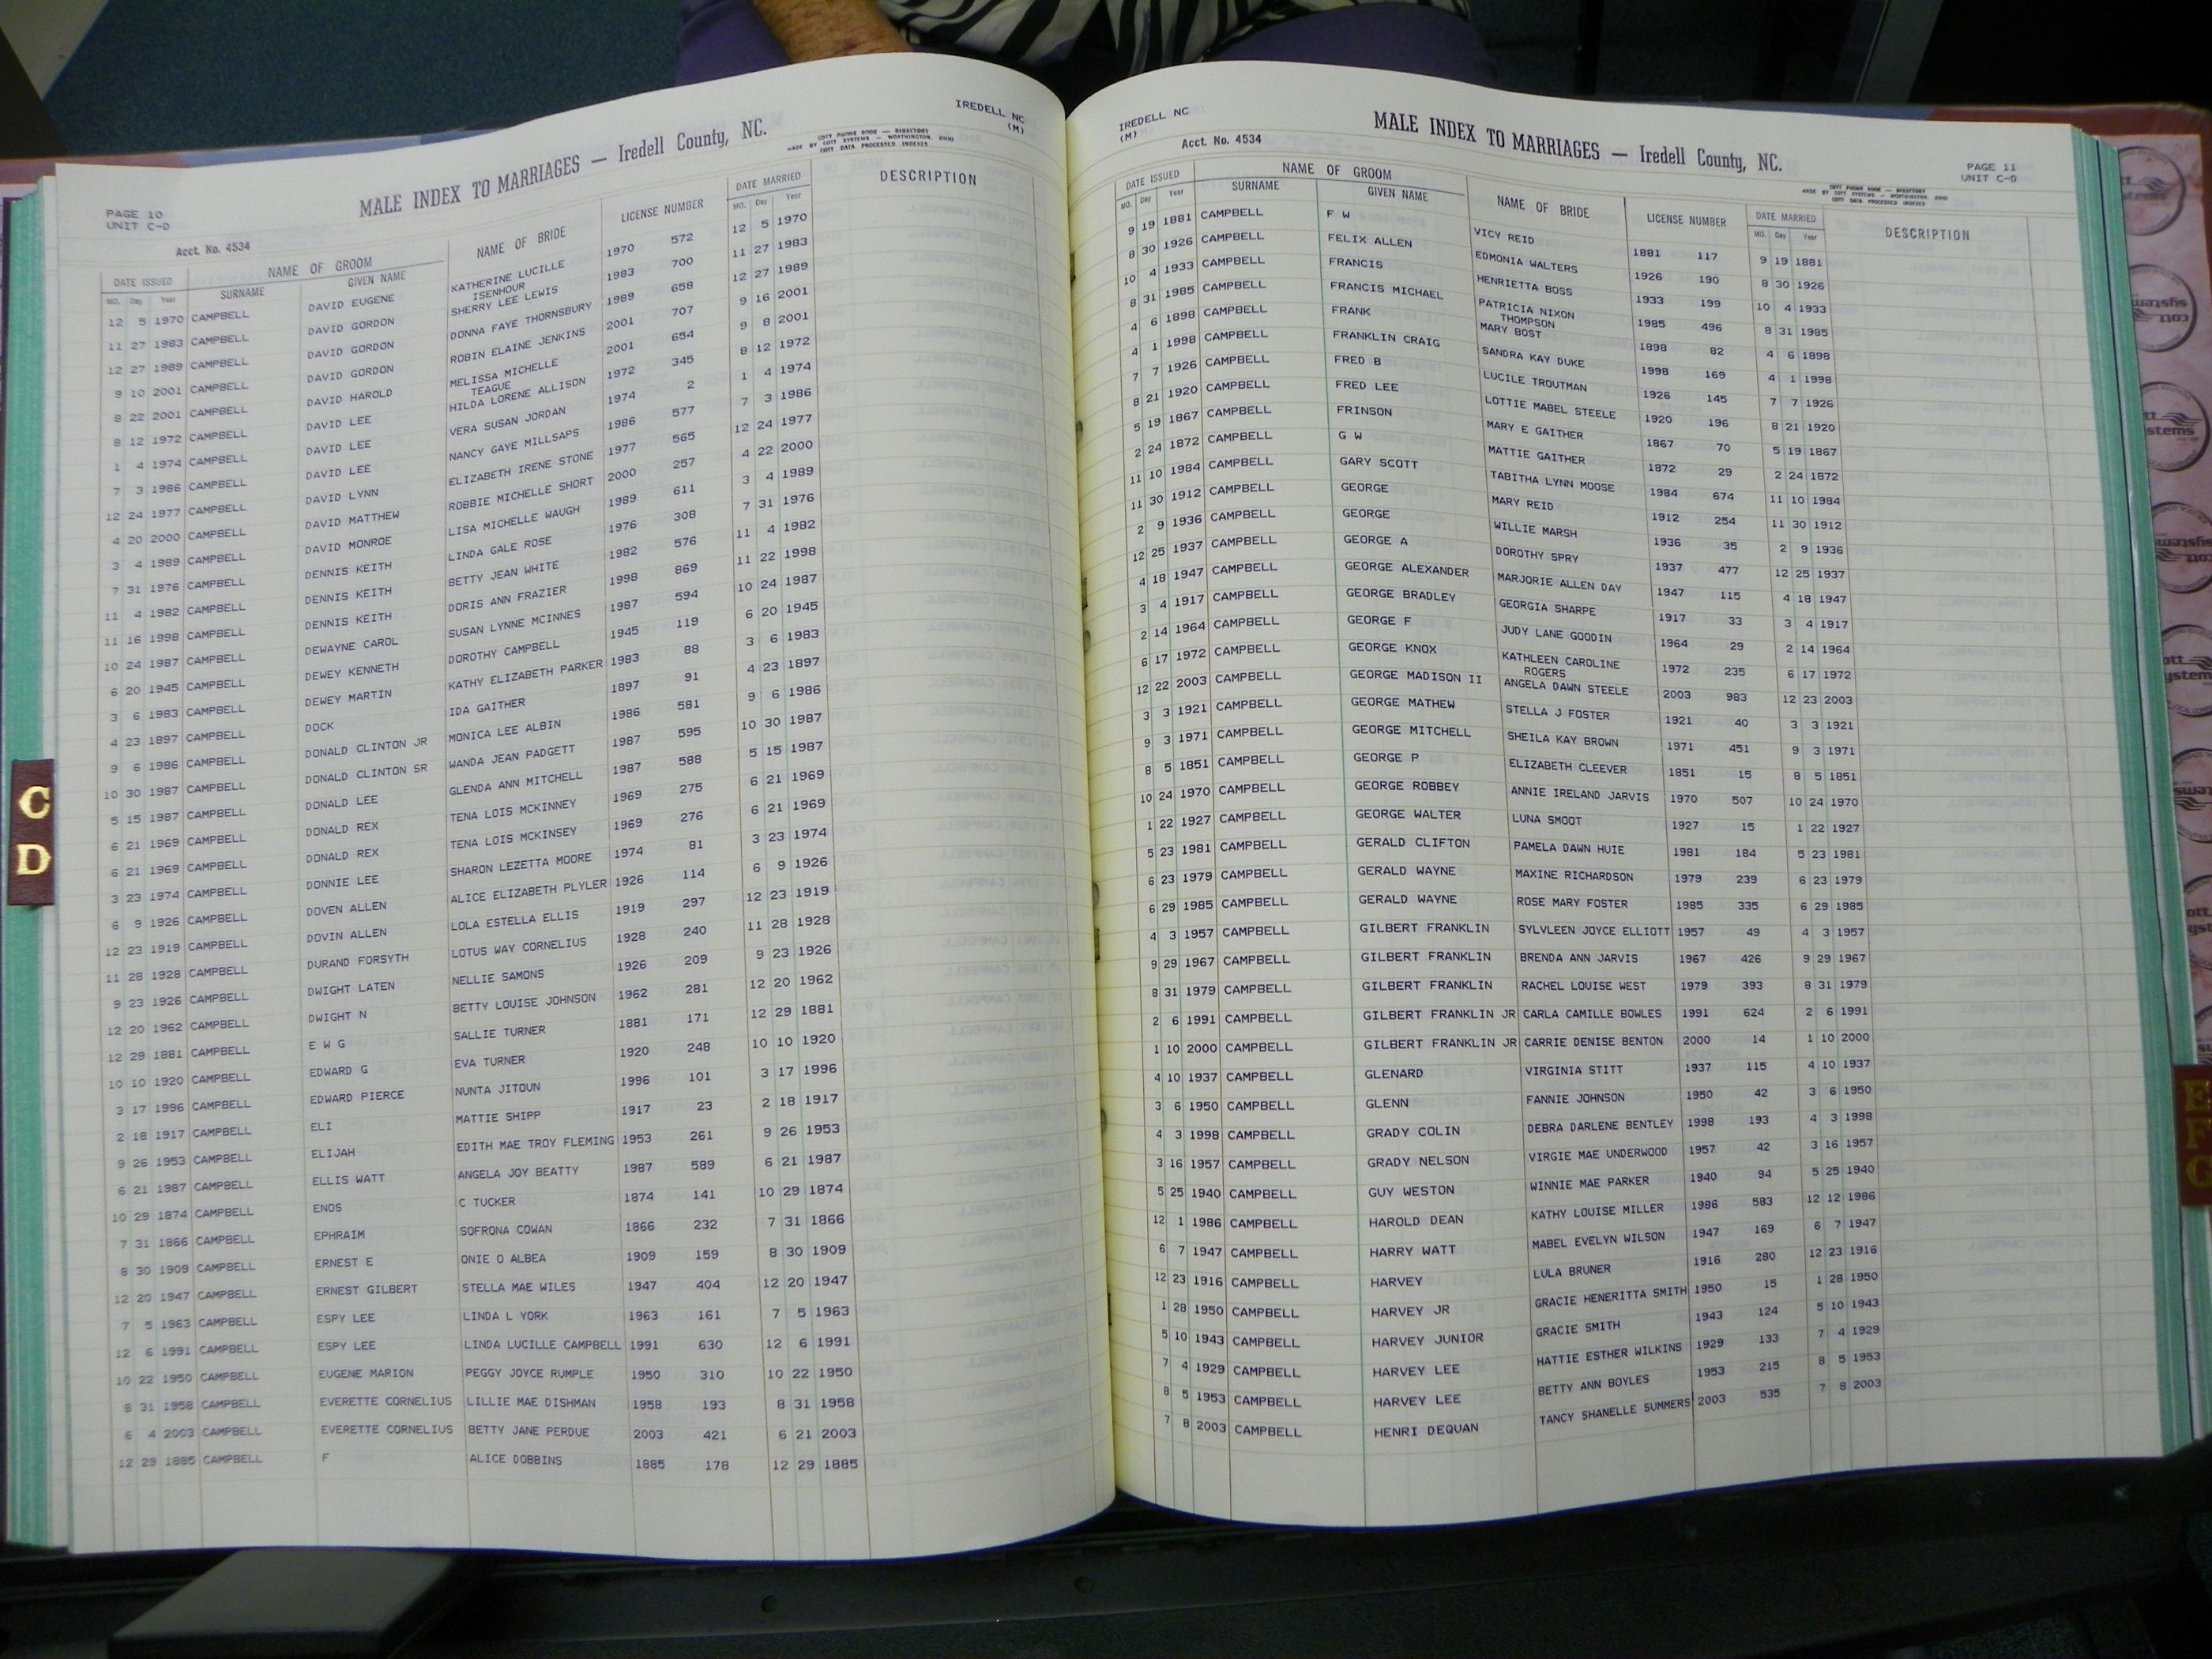 IREDELL NC
(M)
MALE INDEX TO MARRIAGES — Iredell County, NC.
COTT PHONE BOOK — DIRECTORY
MADE BY COTT SYSTEMS — WORTHINGTON, OHIO
COTT DATA PROCESSED INDEXES
PAGE 10
UNIT C-D
Acct. No. 4534
DATE ISSUED NAME OF GROOM NAME OF BRIDE LICENSE NUMBER DATE MARRIED DESCRIPTION
MO. Day Year SURNAME GIVEN NAME MO. Day Year
12 5 1970 CAMPBELL DAVID EUGENE KATHERINE LUCILLE 1970 572 12 5 1970
ISENHOUR
11 27 1983 CAMPBELL DAVID GORDON SHERRY LEE LEWIS 1983 700 11 27 1983
12 27 1989 CAMPBELL DAVID GORDON DONNA FAYE THORNSBURY 1989 658 12 27 1989
9 10 2001 CAMPBELL DAVID GORDON ROBIN ELAINE JENKINS 2001 707 9 16 2001
8 22 2001 CAMPBELL DAVID HAROLD MELISSA MICHELLE 2001 654 9 8 2001
TEAGUE
8 12 1972 CAMPBELL DAVID LEE HILDA LORENE ALLISON 1972 345 8 12 1972
1 4 1974 CAMPBELL DAVID LEE VERA SUSAN JORDAN 1974 2 1 4 1974
7 3 1986 CAMPBELL DAVID LEE NANCY GAYE MILLSAPS 1986 577 7 3 1986
12 24 1977 CAMPBELL DAVID LYNN ELIZABETH IRENE STONE 1977 565 12 24 1977
4 20 2000 CAMPBELL DAVID MATTHEW ROBBIE MICHELLE SHORT 2000 257 4 22 2000
3 4 1989 CAMPBELL DAVID MONROE LISA MICHELLE WAUGH 1989 611 3 4 1989
7 31 1976 CAMPBELL DENNIS KEITH LINDA GALE ROSE 1976 308 7 31 1976
11 4 1982 CAMPBELL DENNIS KEITH BETTY JEAN WHITE 1982 576 11 4 1982
11 16 1998 CAMPBELL DENNIS KEITH DORIS ANN FRAZIER 1998 869 11 22 1998
10 24 1987 CAMPBELL DEWAYNE CAROL SUSAN LYNNE MCINNES 1987 594 10 24 1987
6 20 1945 CAMPBELL DEWEY KENNETH DOROTHY CAMPBELL 1945 119 6 20 1945
3 6 1983 CAMPBELL DEWEY MARTIN KATHY ELIZABETH PARKER 1983 88 3 6 1983
4 23 1897 CAMPBELL DOCK IDA GAITHER 1897 91 4 23 1897
9 6 1986 CAMPBELL DONALD CLINTON JR MONICA LEE ALBIN 1986 581 9 6 1986
10 30 1987 CAMPBELL DONALD CLINTON SR WANDA JEAN PADGETT 1987 595 10 30 1987
5 15 1987 CAMPBELL DONALD LEE GLENDA ANN MITCHELL 1987 588 5 15 1987
6 21 1969 CAMPBELL DONALD REX TENA LOIS MCKINNEY 1969 275 6 21 1969
6 21 1969 CAMPBELL DONALD REX TENA LOIS MCKINSEY 1969 276 6 21 1969
3 23 1974 CAMPBELL DONNIE LEE SHARON LEZETTA MOORE 1974 81 3 23 1974
6 9 1926 CAMPBELL DOVEN ALLEN ALICE ELIZABETH PLYLER 1926 114 6 9 1926
12 23 1919 CAMPBELL DOVIN ALLEN LOLA ESTELLA ELLIS 1919 297 12 23 1919
11 28 1928 CAMPBELL DURAND FORSYTH LOTUS WAY CORNELIUS 1928 240 11 28 1928
9 23 1926 CAMPBELL DWIGHT LATEN NELLIE SAMONS 1926 209 9 23 1926
12 20 1962 CAMPBELL DWIGHT N BETTY LOUISE JOHNSON 1962 281 12 20 1962
12 29 1881 CAMPBELL E W G SALLIE TURNER 1881 171 12 29 1881
10 10 1920 CAMPBELL EDWARD G EVA TURNER 1920 248 10 10 1920
3 17 1996 CAMPBELL EDWARD PIERCE NUNTA JITOUN 1996 101 3 17 1996
2 18 1917 CAMPBELL ELI MATTIE SHIPP 1917 23 2 18 1917
9 26 1953 CAMPBELL ELIJAH EDITH MAE TROY FLEMING 1953 261 9 26 1953
6 21 1987 CAMPBELL ELLIS WATT ANGELA JOY BEATTY 1987 589 6 21 1987
10 29 1874 CAMPBELL ENOS C TUCKER 1874 141 10 29 1874
7 31 1866 CAMPBELL EPHRAIM SOFRONA COWAN 1866 232 7 31 1866
8 30 1909 CAMPBELL ERNEST E ONIE O ALBEA 1909 159 8 30 1909
12 20 1947 CAMPBELL ERNEST GILBERT STELLA MAE WILES 1947 404 12 20 1947
7 5 1963 CAMPBELL ESPY LEE LINDA L YORK 1963 161 7 5 1963
12 6 1991 CAMPBELL ESPY LEE LINDA LUCILLE CAMPBELL 1991 630 12 6 1991
10 22 1950 CAMPBELL EUGENE MARION PEGGY JOYCE RUMPLE 1950 310 10 22 1950
8 31 1958 CAMPBELL EVERETTE CORNELIUS LILLIE MAE DISHMAN 1958 193 8 31 1958
6 4 2003 CAMPBELL EVERETTE CORNELIUS BETTY JANE PERDUE 2003 421 6 21 2003
12 29 1885 CAMPBELL F ALICE DOBBINS 1885 178 12 29 1885
C
D
IREDELL NC
(M)
Acct. No. 4534
MALE INDEX TO MARRIAGES — Iredell County, NC.
PAGE 11
UNIT C-D
COTT PHONE BOOK — DIRECTORY
MADE BY COTT SYSTEMS — WORTHINGTON, OHIO
COTT DATA PROCESSED INDEXES
DATE ISSUED NAME OF GROOM NAME OF BRIDE LICENSE NUMBER DATE MARRIED DESCRIPTION
MO. Day Year SURNAME GIVEN NAME MO. Day Year
9 19 1881 CAMPBELL F W VICY REID 1881 117 9 19 1881
8 30 1926 CAMPBELL FELIX ALLEN EDMONIA WALTERS 1926 190 8 30 1926
10 4 1933 CAMPBELL FRANCIS HENRIETTA BOSS 1933 199 10 4 1933
8 31 1985 CAMPBELL FRANCIS MICHAEL PATRICIA NIXON 1985 496 8 31 1985
THOMPSON
4 6 1898 CAMPBELL FRANK MARY BOST 1898 82 4 6 1898
4 1 1998 CAMPBELL FRANKLIN CRAIG SANDRA KAY DUKE 1998 169 4 1 1998
7 7 1926 CAMPBELL FRED B LUCILE TROUTMAN 1926 145 7 7 1926
8 21 1920 CAMPBELL FRED LEE LOTTIE MABEL STEELE 1920 196 8 21 1920
5 19 1867 CAMPBELL FRINSON MARY E GAITHER 1867 70 5 19 1867
2 24 1872 CAMPBELL G W MATTIE GAITHER 1872 29 2 24 1872
11 10 1984 CAMPBELL GARY SCOTT TABITHA LYNN MOOSE 1984 674 11 10 1984
11 30 1912 CAMPBELL GEORGE MARY REID 1912 254 11 30 1912
2 9 1936 CAMPBELL GEORGE WILLIE MARSH 1936 35 2 9 1936
12 25 1937 CAMPBELL GEORGE A DOROTHY SPRY 1937 477 12 25 1937
4 18 1947 CAMPBELL GEORGE ALEXANDER MARJORIE ALLEN DAY 1947 115 4 18 1947
3 4 1917 CAMPBELL GEORGE BRADLEY GEORGIA SHARPE 1917 33 3 4 1917
2 14 1964 CAMPBELL GEORGE F JUDY LANE GOODIN 1964 29 2 14 1964
6 17 1972 CAMPBELL GEORGE KNOX KATHLEEN CAROLINE 1972 235 6 17 1972
ROGERS
12 22 2003 CAMPBELL GEORGE MADISON II ANGELA DAWN STEELE 2003 983 12 23 2003
3 3 1921 CAMPBELL GEORGE MATHEW STELLA J FOSTER 1921 40 3 3 1921
9 3 1971 CAMPBELL GEORGE MITCHELL SHEILA KAY BROWN 1971 451 9 3 1971
8 5 1851 CAMPBELL GEORGE P ELIZABETH CLEEVER 1851 15 8 5 1851
10 24 1970 CAMPBELL GEORGE ROBBEY ANNIE IRELAND JARVIS 1970 507 10 24 1970
1 22 1927 CAMPBELL GEORGE WALTER LUNA SMOOT 1927 15 1 22 1927
5 23 1981 CAMPBELL GERALD CLIFTON PAMELA DAWN HUIE 1981 184 5 23 1981
6 23 1979 CAMPBELL GERALD WAYNE MAXINE RICHARDSON 1979 239 6 23 1979
6 29 1985 CAMPBELL GERALD WAYNE ROSE MARY FOSTER 1985 335 6 29 1985
4 3 1957 CAMPBELL GILBERT FRANKLIN SYLVLEEN JOYCE ELLIOTT 1957 49 4 3 1957
9 29 1967 CAMPBELL GILBERT FRANKLIN BRENDA ANN JARVIS 1967 426 9 29 1967
8 31 1979 CAMPBELL GILBERT FRANKLIN RACHEL LOUISE WEST 1979 393 8 31 1979
2 6 1991 CAMPBELL GILBERT FRANKLIN JR CARLA CAMILLE BOWLES 1991 624 2 6 1991
1 10 2000 CAMPBELL GILBERT FRANKLIN JR CARRIE DENISE BENTON 2000 14 1 10 2000
4 10 1937 CAMPBELL GLENARD VIRGINIA STITT 1937 115 4 10 1937
3 6 1950 CAMPBELL GLENN FANNIE JOHNSON 1950 42 3 6 1950
4 3 1998 CAMPBELL GRADY COLIN DEBRA DARLENE BENTLEY 1998 193 4 3 1998
3 16 1957 CAMPBELL GRADY NELSON VIRGIE MAE UNDERWOOD 1957 42 3 16 1957
5 25 1940 CAMPBELL GUY WESTON WINNIE MAE PARKER 1940 94 5 25 1940
12 1 1986 CAMPBELL HAROLD DEAN KATHY LOUISE MILLER 1986 583 12 12 1986
6 7 1947 CAMPBELL HARRY WATT MABEL EVELYN WILSON 1947 169 6 7 1947
12 23 1916 CAMPBELL HARVEY LULA BRUNER 1916 280 12 23 1916
1 28 1950 CAMPBELL HARVEY JR GRACIE HENERITTA SMITH 1950 15 1 28 1950
5 10 1943 CAMPBELL HARVEY JUNIOR GRACIE SMITH 1943 124 5 10 1943
7 4 1929 CAMPBELL HARVEY LEE HATTIE ESTHER WILKINS 1929 133 7 4 1929
8 5 1953 CAMPBELL HARVEY LEE BETTY ANN BOYLES 1953 215 8 5 1953
7 8 2003 CAMPBELL HENRI DEQUAN TANCY SHANELLE SUMMERS 2003 535 7 8 2003
E
F
G